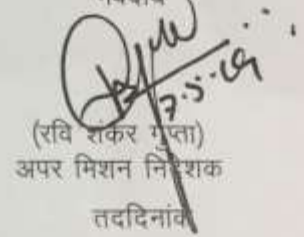 7.5.19
(रवि शंकर गुप्ता)
अपर मिशन निदेशक
तददिनांक